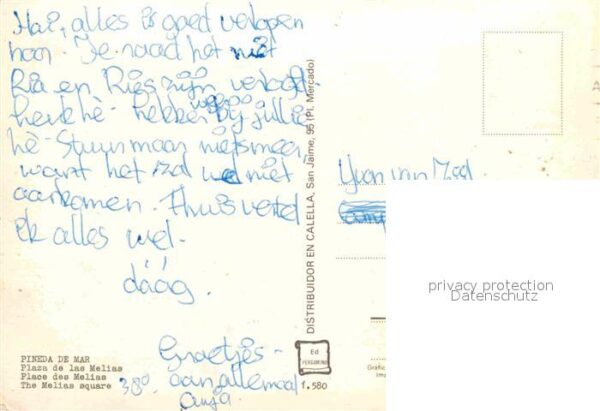 Hai, alles is goed verlopen
hoor. Je raad het niet
Ria en Ries zijn verloofd.
hè - lekker weer bij jullie
hè - Stuur maar niets meer,
want het zal wel niet
aankomen. Thuis vertel
ik alles wel.
dááág.
Groetjes -
aan allemaal
Anja.
38°
PINEDA DE MAR
Plaza de las Melias
Place des Melias
The Melias square
DISTRIBUIDOR EN CALELLA, San Jaime, 95 (Pl. Mercado)
Ed
PERGAMINO
1.580
Yvon van
privacy protection
Datenschutz